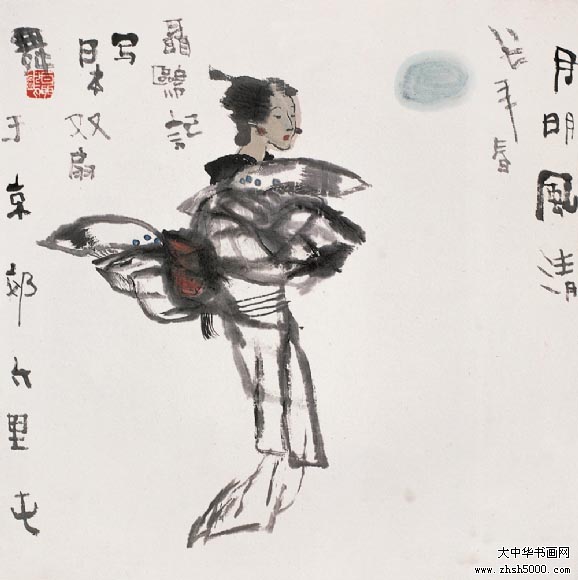 月明風清
年春
聶鷗記
写
日本双扇
舞
于京郊六里屯
大中华书画网
www.zhsh5000.com